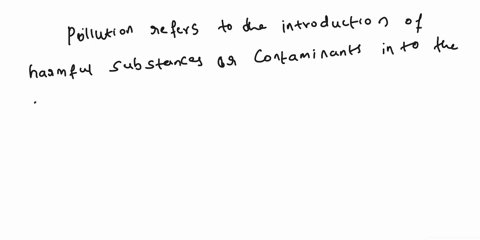 Pollution refers to the introduction of
harmful substances or contaminants in to the